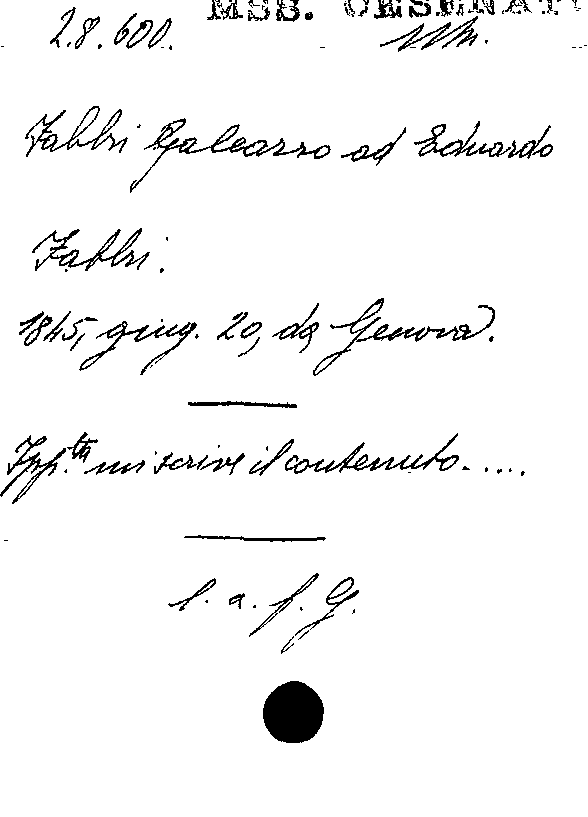 MSS. CESENAT
2.8.600.
Fabbri Galeazzo ad Eduardo
Fabbri.
1845, giug. 20, da Genova.
Ipp.ta mi scrive il contenuto.....
l. a. f. G.